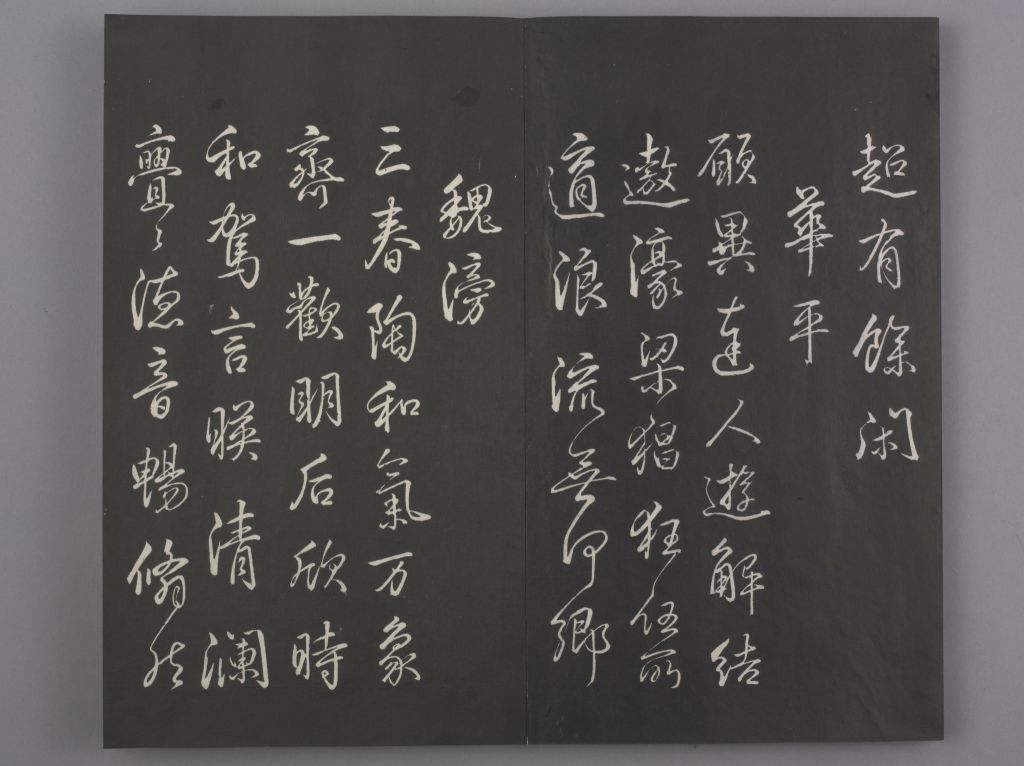 超有餘閑
華平
願異達人遊解結
遨濠梁猖狂任所
適浪流無何鄉
魏滂
三春陶和氣万象
齊一歡明后欣時
和駕言暎清瀾
亹〻德音暢翛然